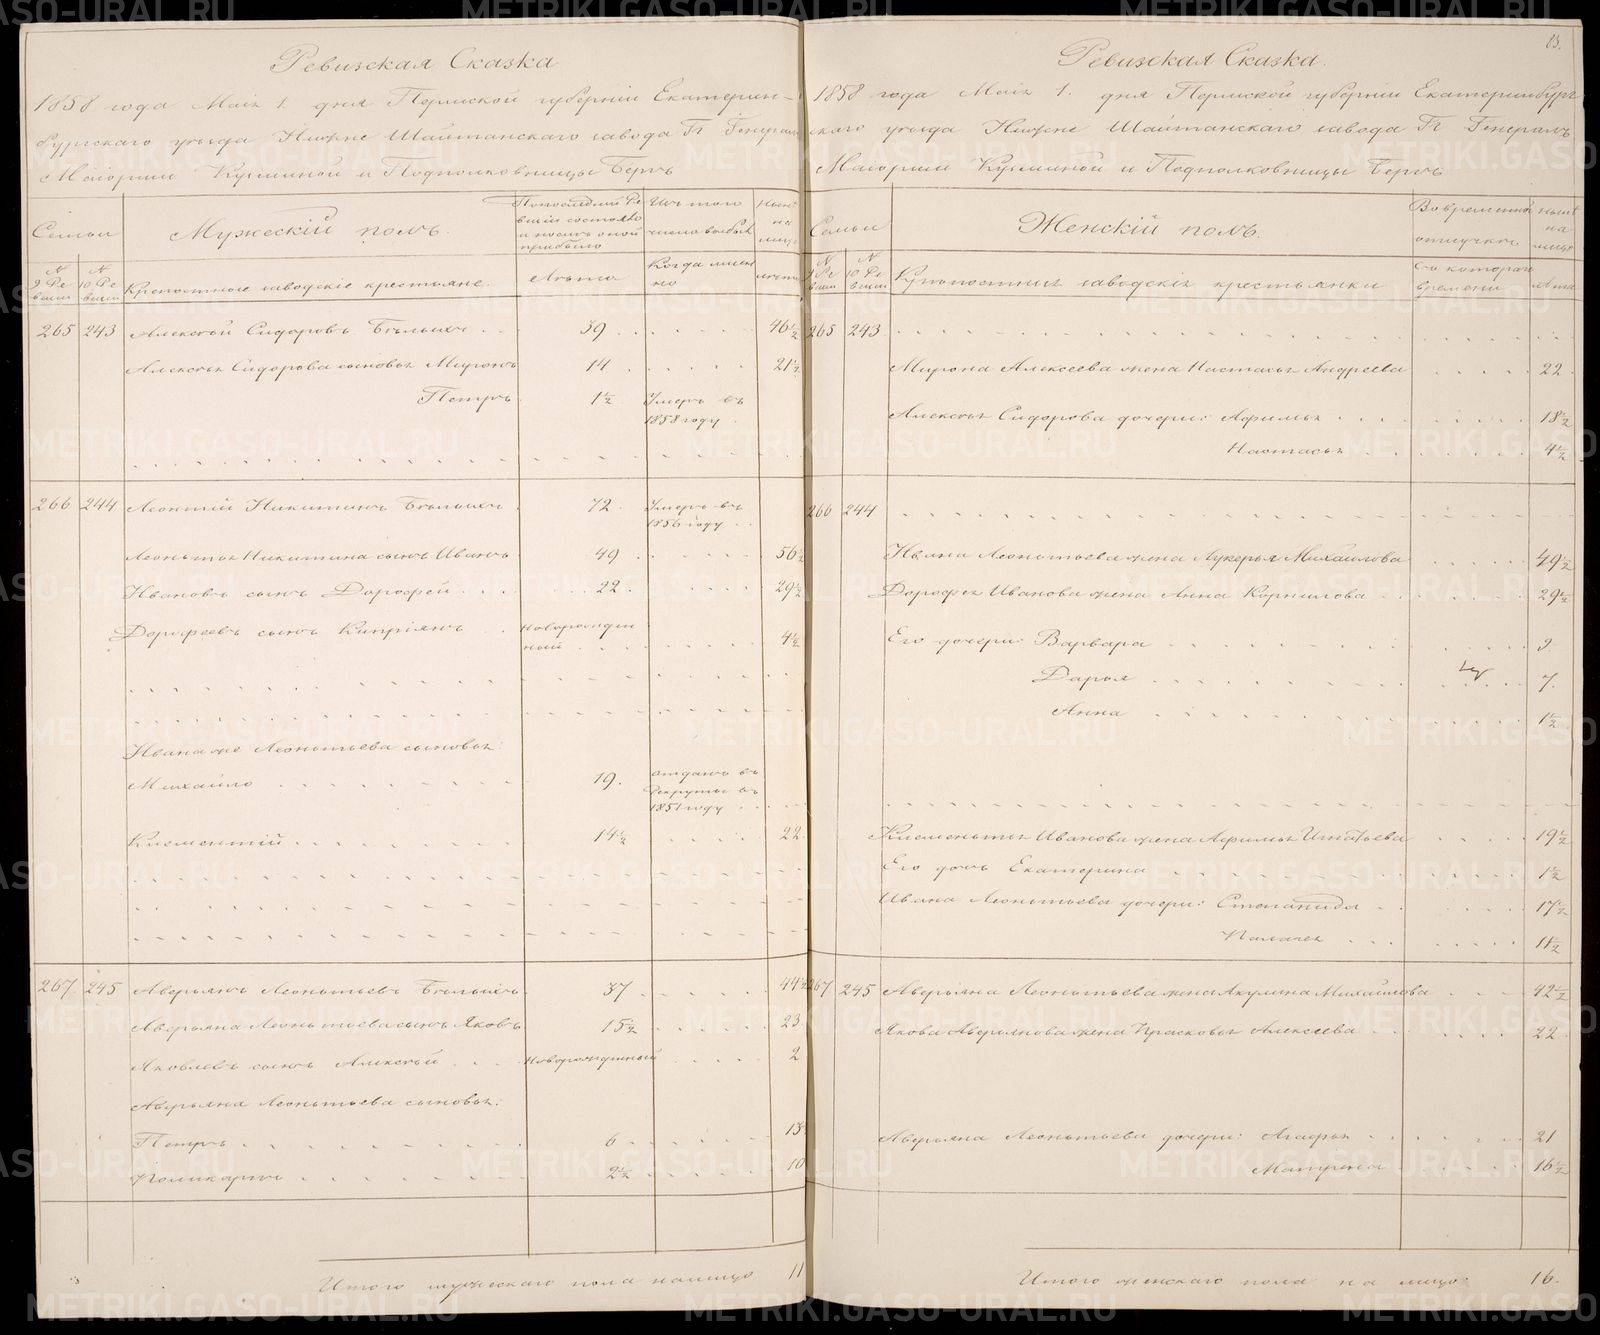 Ревизская Сказка
1858 года Маія 1. дня Пермской губерніи Екатерин-
бургскаго уѣзда Нижне Шайтанскаго завода Гг Генералъ
Маіорши Кузминой и Подполковницы Бергъ
Семьи
Мужескій полъ.
По последней Ре
визіи состояло
и послѣ оной
прибыло
Изъ того
числа выбыло
Нынѣ
на
лицо
№
9 Ре
визіи
№
10 Ре
визіи
Крепостные заводскіе крестьяне.
Лѣта
Когда имен
но
лѣта
265 243 Алексѣй Сидоровъ Бѣлыхъ 39 46½
Алексѣя Сидорова сыновья Миронъ 14 21½
Петръ 1½ Умеръ въ
1858 году
266 244 Леонтій Никитинъ Бѣлыхъ 72. Умеръ въ
1856 году
Леонтья Никитина сынъ Иванъ 49 56½
Ивановъ сынъ Дорофей 22 29½
Дорофеевъ сынъ Кипріянъ Новорожден
ный 4½
Ивана же Леонтьева сыновья:
Михайло 19. отданъ въ
рекруты въ
1851 году
Клементій 14½ 22
267 245 Аверьянъ Леонтьевъ Бѣлыхъ 37 44½
Аверьяна Леонтьева сынъ Яковъ 15½ 23
Яковлевъ сынъ Алексѣй Новорожденный 2
Аверьяна Леонтьева сыновья:
Петръ 6 13½
Поликарпъ 2½ 10
Итого мужескаго пола налицо 11
83.
Ревизская Сказка.
1858 года Маія 1. дня Пермской губерніи Екатеринбург
скаго уѣзда Нижне Шайтанскаго завода Гг Генералъ
Маіорши Кузминой и Подполковницы Бергъ
Семьи
Женскій полъ.
Во временной
отлучкѣ
Нынѣ
на
лицо
№
9 Ре
визіи
№
10 Ре
визіи
Крѣпостныя заводскія крестьянки
Съ котораго
времени
Лѣта
265 243
Мирона Алексеева жена Настасья Андреева 22
Алексѣя Сидорова дочери: Афимья 18½
Настасья 4½
266 244
Ивана Леонтьева жена Лукерья Михайлова 49½
Дорофея Иванова жена Анна Корнилова 29½
Его дочери: Варвара 9
Дарья 7.
Анна 1½
Клементья Иванова жена Афимья Игнатьева 19½
Его дочь Екатерина 1½
Ивана Леонтьева дочери: Степанида 17½
Палагея 11½
267 245 Аверьяна Леонтьева жена Акулина Михайлова 42½
Якова Аверьянова жена Прасковья Алексеева 22
Аверьяна Леонтьева дочери: Агафья 21
Матрена 16½
Итого женскаго пола на лицо: 16.
METRIKI.GASO-URAL.RU